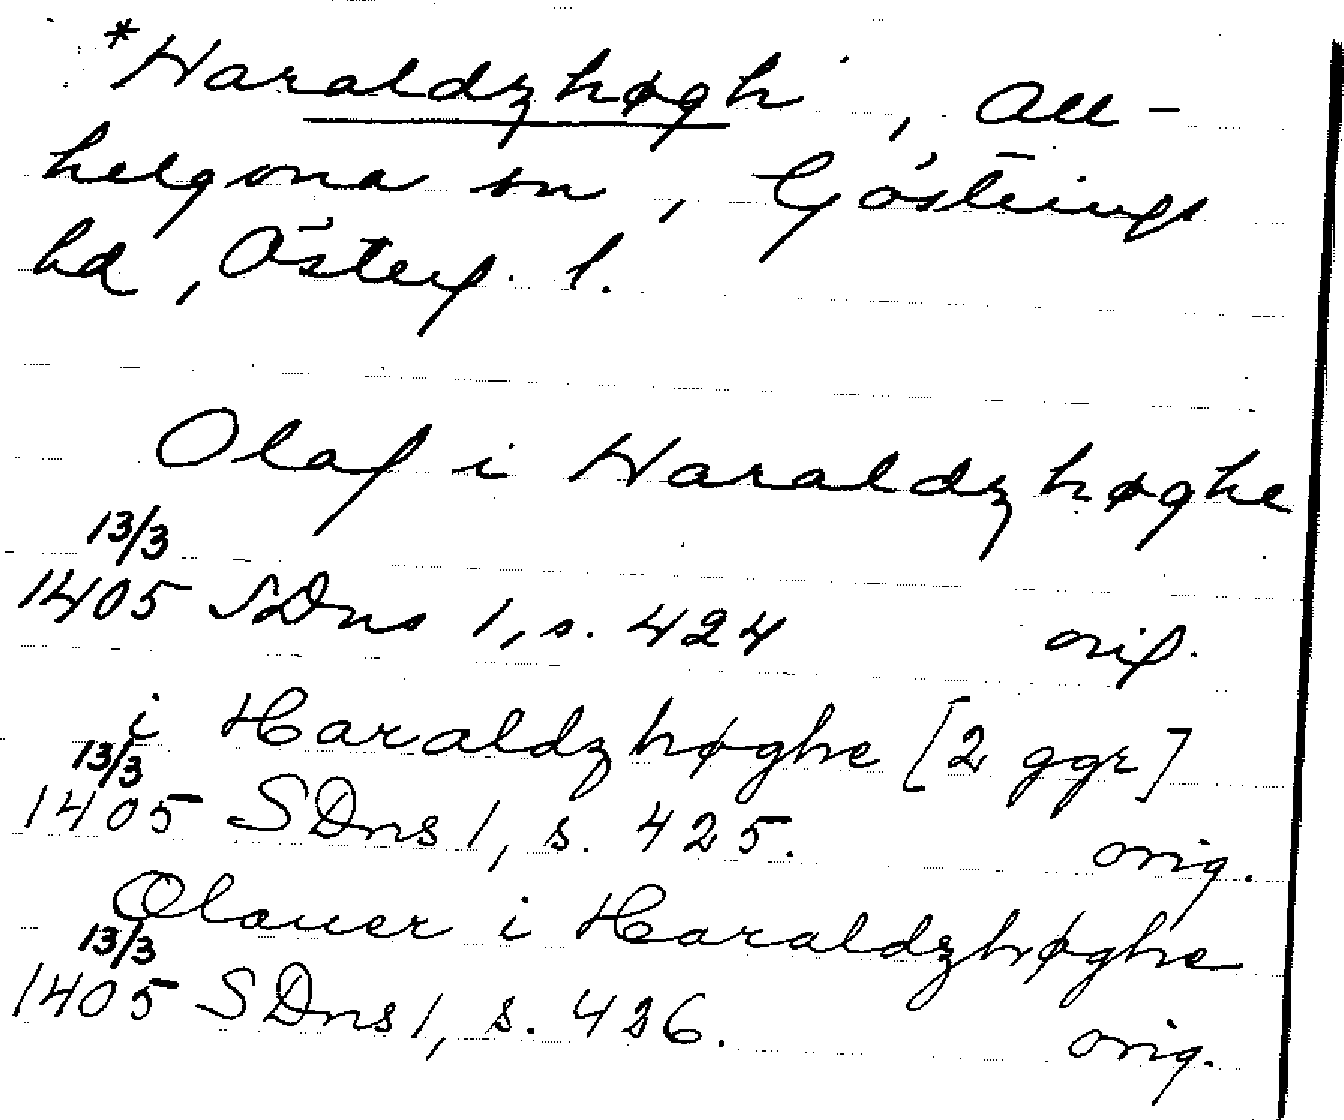 *Haraldzhøgh, All-
helgona sn, Göstrings
hd, Österg. l.
Olaf i Haraldzhøghe
13/3
1405 SDns 1, s. 424 orig.
i Haraldzhøghe [2 ggr]
13/3
1405 SDns 1, s. 425. orig.
Olauer i Haraldzhøghe
13/3
1405 SDns 1, s. 426. orig.